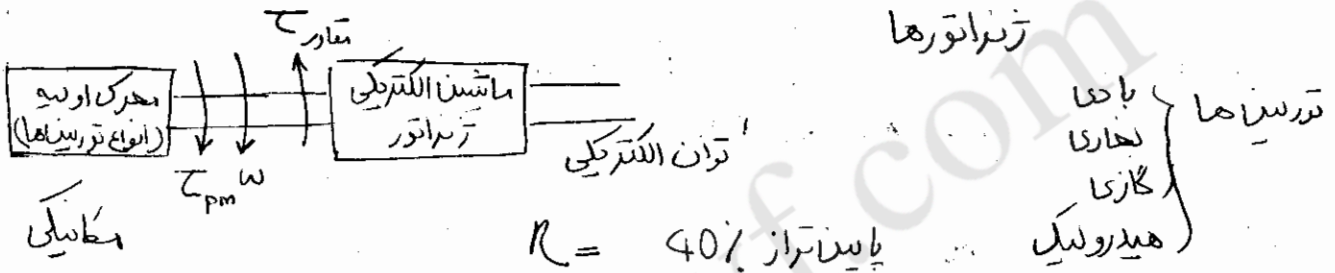 ژنراتورها
τ مقاوم
محرک اولیه
(انواع توربین‌ها)
ماشین الکتریکی
ژنراتور
توان الکتریکی
τpm ω
مکانیکی
توربین ها
بادی
بخاری
گازی
هیدرولیک
η = پایین‌تر از 40%
f.com